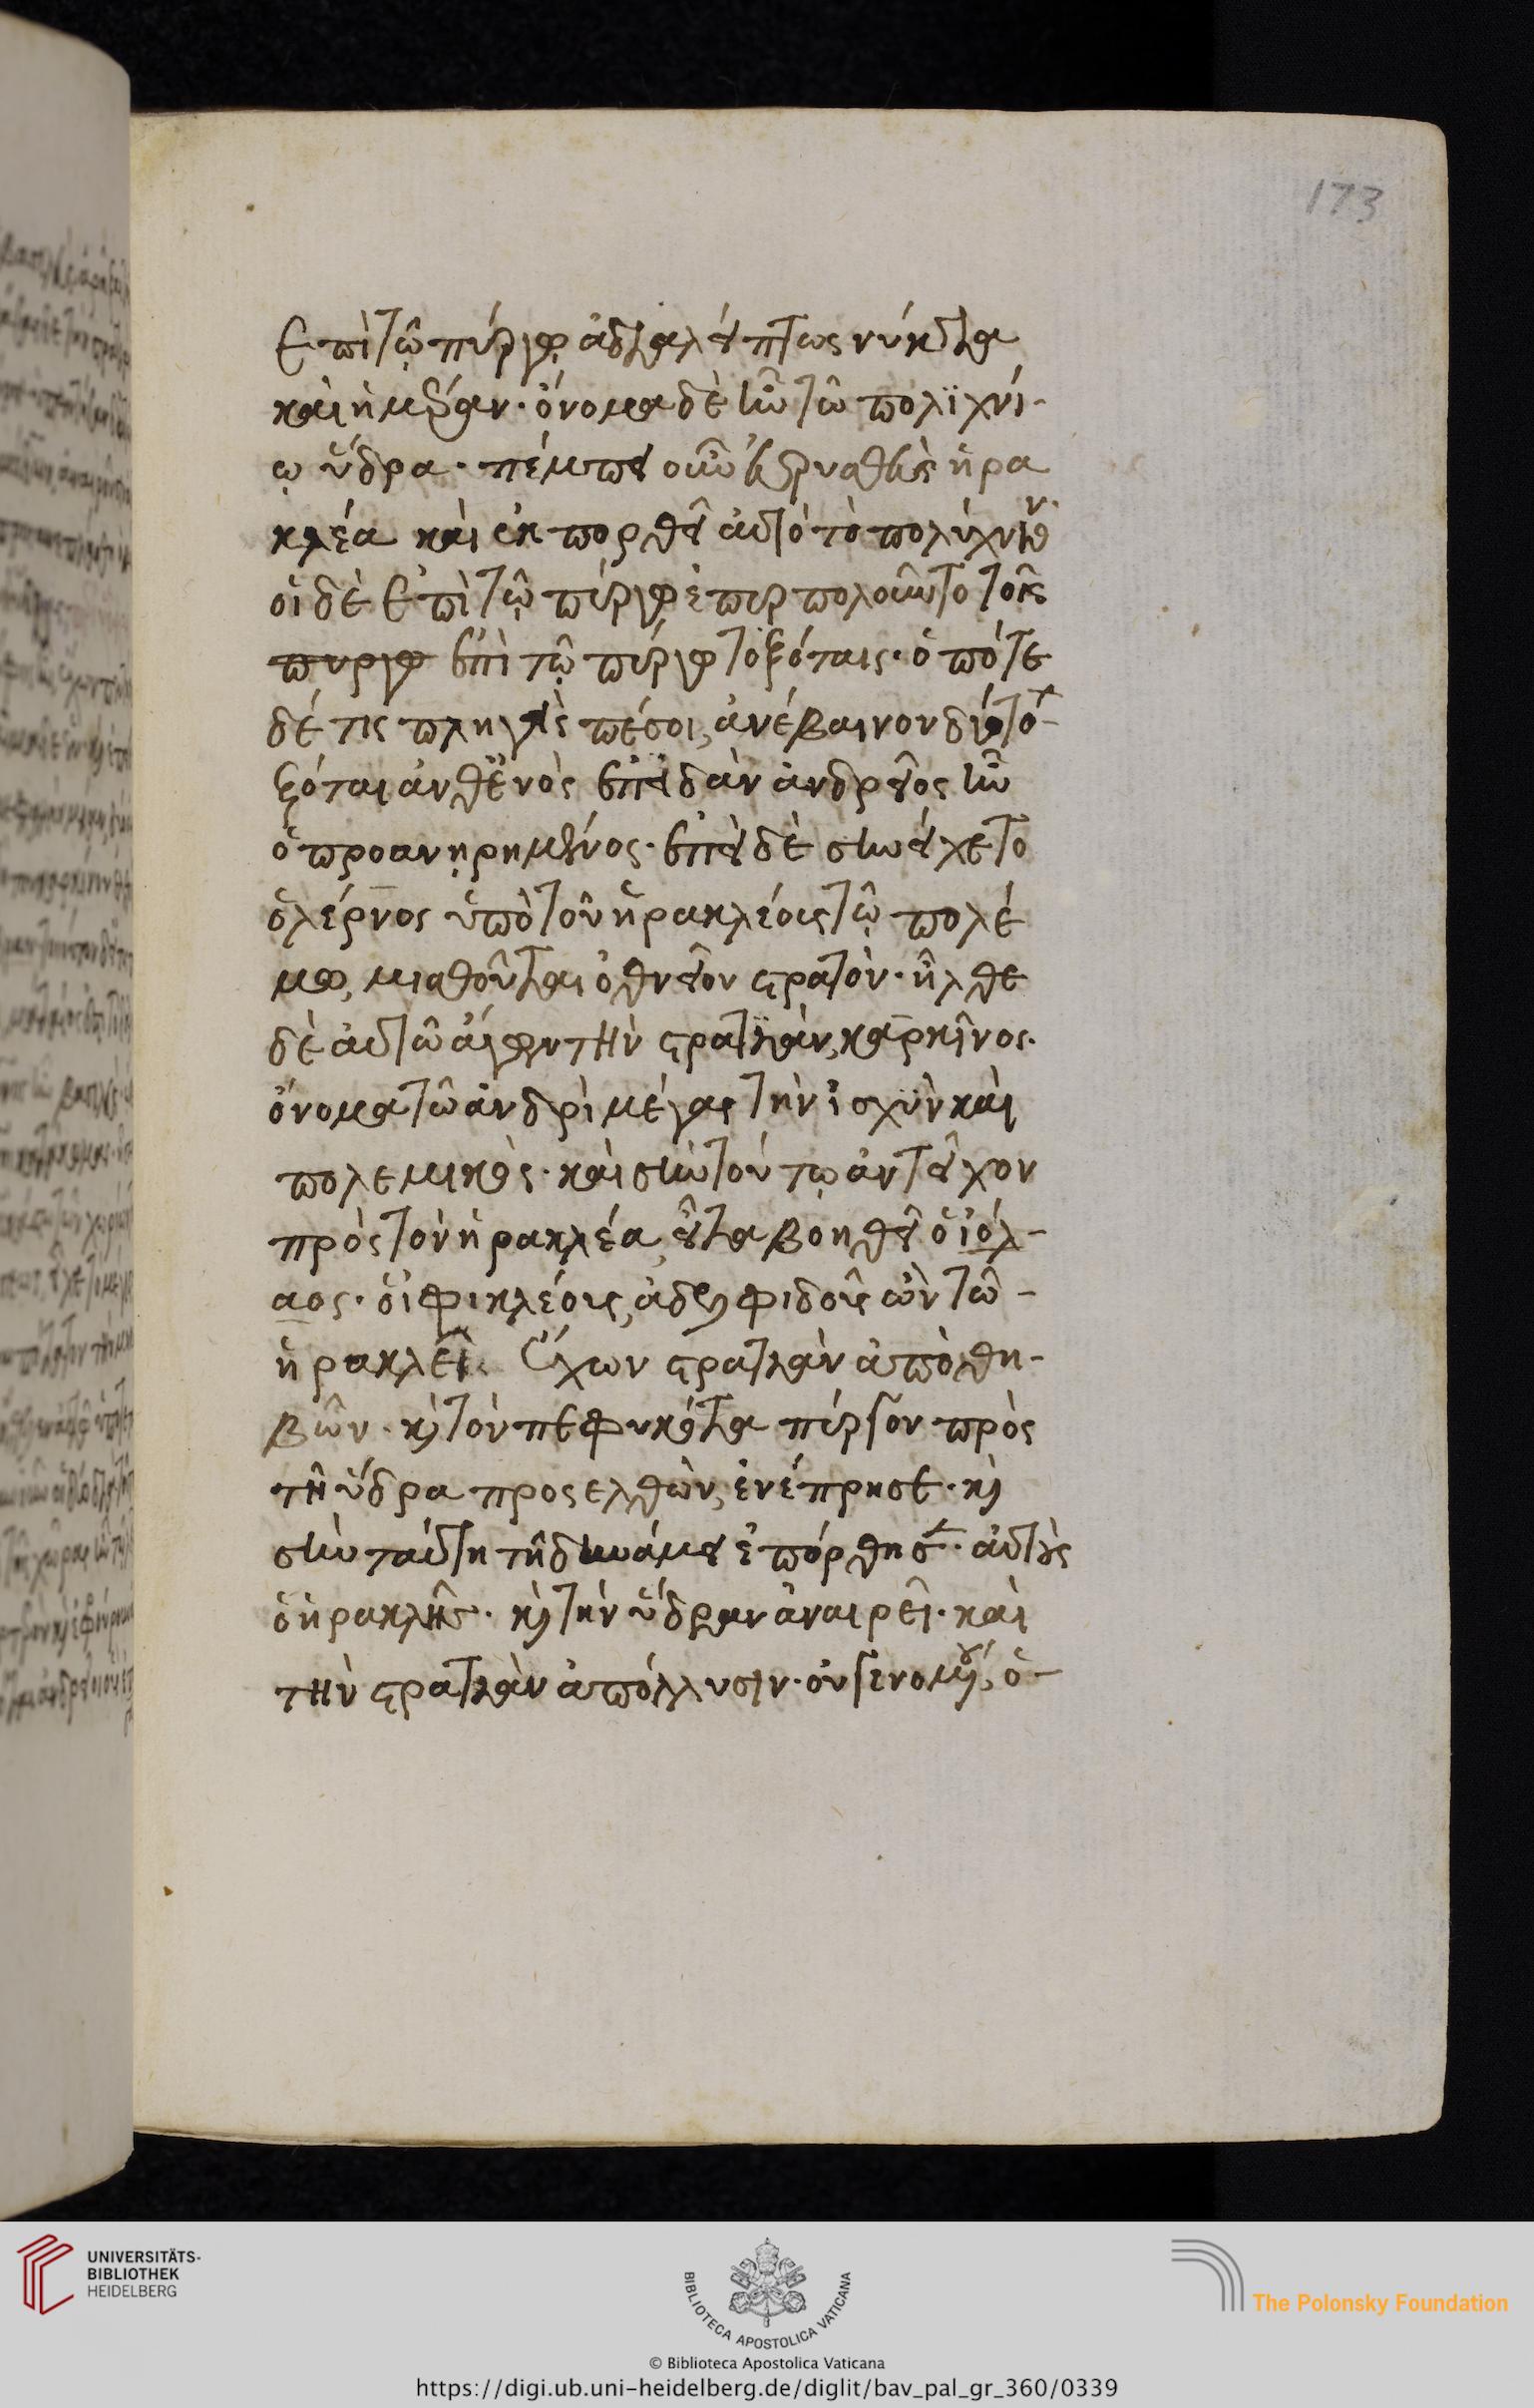 173
ἐπὶ τῷ πύργῳ ἀδιαλείπτως νύκτα
καὶ ἡμέραν· ὄνομα δὲ ἦν τῶ πολϊχνί-
ῳ ὕδρα· πέμπει οὖν εὐρυσθεὺς ἡρα
κλέα καὶ ἐκπορθεῖ αὐτὸ τὸ πολύχνιον
οἱ δὲ ἐπὶ τῷ πύργῳ ἐπυρπολοῦντο τοῖς
πυργῳ ἐπὶ τῷ πύργῳ τοξόταις· ὁπότε
δέ τις πληγεὶς πέσοι, ἀνέβαινον δύο το-
ξόται ἀνθ' ἑνὸς ἐπειδὰν ἀνδρεῖος ἦν
ὁ προανῃρημένος· ἐπεὶ δὲ συνείχετο
ὁ λέρνος ὑπὸ τοῦ ἡρακλέους τῷ πολέ
μῳ, μισθοῦται ὀθνεῖον στρατόν· ἦλθε
δὲ αὐτῶ ἄγων τὴν στρατϊὰν, καρκῖνος·
ὄνομα τῶ ἀνδρὶ μέγας τὴν ἰσχῢν καὶ
πολεμικός· καὶ σὺν τούτῳ ἀντεῖχον
πρὸς τὸν ἡρακλέα, εἶτα βοηθεῖ ὁ ἰόλ-
αος· ὁ ἰφικλέους, ἀδελφιδοῦς ὢν τῶ-
ἡρακλεῖ. ἔχων στρατιὰν ἀπὸ θη-
βῶν· κ τὸν πεφυκότα πύργον πρὸς
τῆ ὕδρα προςελθὼν, ἐνέπρησε· κ
σὺν ταύτη τῆ δυνάμει ἐπόρθησεν· αὐτὸς
ὁ ἡρακλῆς· κ τὴν ὕδραν ἀναιρεῖ· καὶ
τὴν στρατιὰν ἀπόλλυσιν· οὗ γενομένου, ὁ-
UNIVERSITÄTS-
BIBLIOTHEK
HEIDELBERG
BIBLIOTECA APOSTOLICA VATICANA
The Polonsky Foundation
© Biblioteca Apostolica Vaticana
https://digi.ub.uni-heidelberg.de/diglit/bav_pal_gr_360/0339